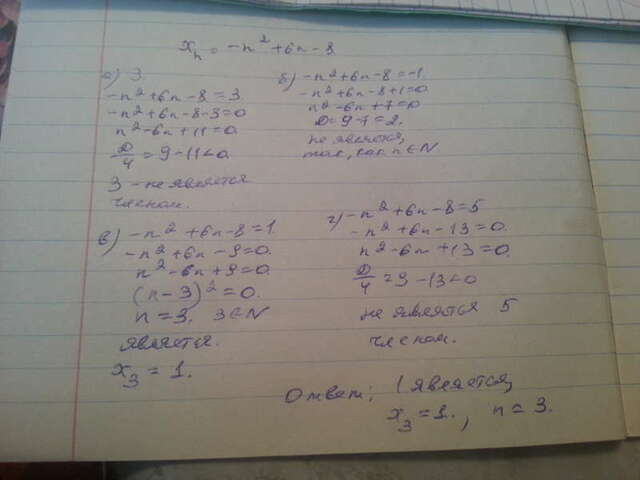 xₙ = -n² + 6n - 8
а) 3
-n² + 6n - 8 = 3
-n² + 6n - 8 - 3 = 0
n² - 6n + 11 = 0
D/4 = 9 - 11 < 0
3 - не является
членом.
б) -n² + 6n - 8 = -1.
-n² + 6n - 8 + 1 = 0
n² - 6n + 7 = 0
D = 9 - 7 = 2.
не является,
так, как n ∈ N
в) -n² + 6n - 8 = 1.
-n² + 6n - 9 = 0.
n² - 6n + 9 = 0.
(n - 3)² = 0.
n = 3, 3 ∈ N
является.
x₃ = 1.
г) -n² + 6n - 8 = 5
-n² + 6n - 13 = 0.
n² - 6n + 13 = 0.
D/4 = 9 - 13 < 0
не является 5
членом.
Ответ: 1 является,
x₃ = 1., n = 3.